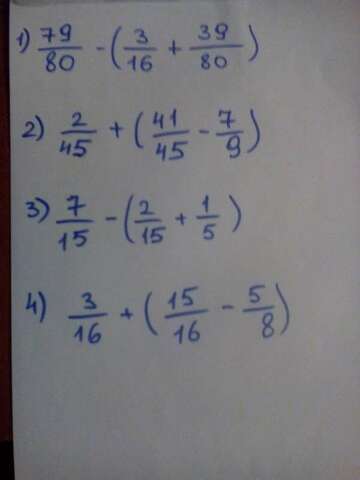 1) 79/80 - (3/16 + 39/80)
2) 2/45 + (41/45 - 7/9)
3) 7/15 - (2/15 + 1/5)
4) 3/16 + (15/16 - 5/8)